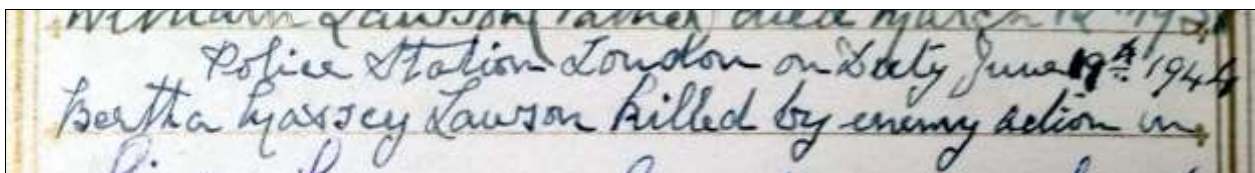 William Lawson (Father) died March 12th 193
Police Station London on Duty June 19th 1944
Bertha Massey Lawson killed by enemy action in